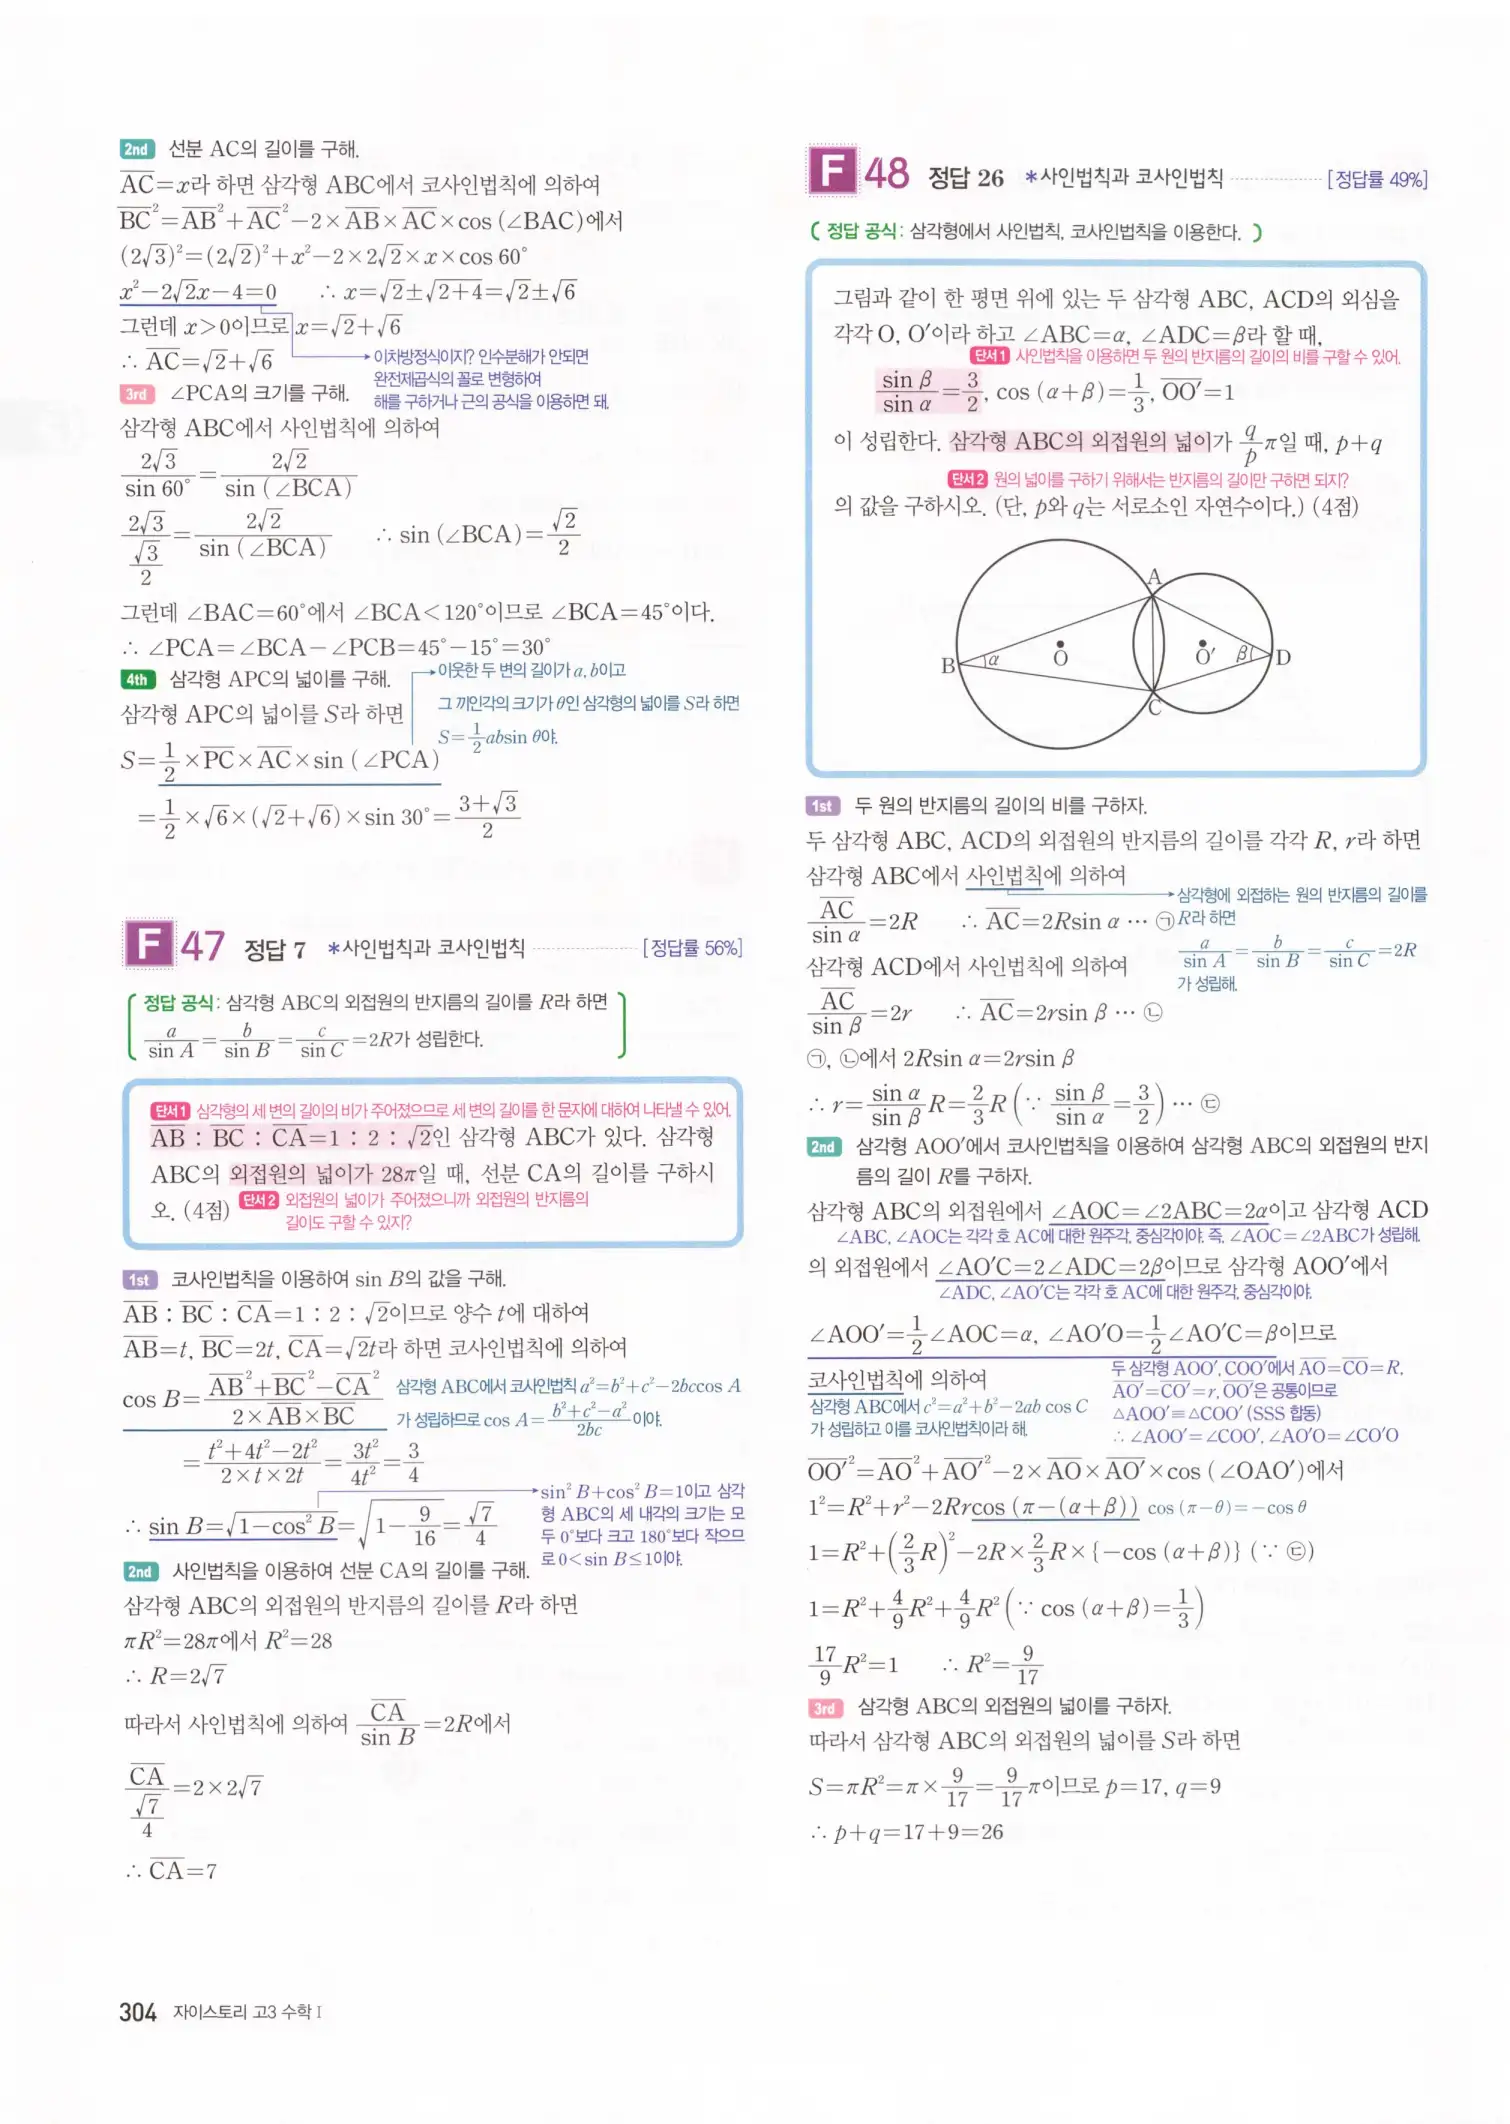 2nd 선분 AC의 길이를 구해.
AC=x라 하면 삼각형 ABC에서 코사인법칙에 의하여
BC²=AB²+AC²-2×AB×AC×cos (∠BAC)에서
(2√3)²=(2√2)²+x²-2×2√2×x×cos 60°
x²-2√2x-4=0 ∴ x=√2±√2+4=√2±√6
그런데 x>0이므로 x=√2+√6
∴ AC=√2+√6
이차방정식이지? 인수분해가 안되면
완전제곱식의 꼴로 변형하여
해를 구하거나 근의 공식을 이용하면 돼.
3rd ∠PCA의 크기를 구해.
삼각형 ABC에서 사인법칙에 의하여
2√3/sin 60° = 2√2/sin (∠BCA)
2√3/(√3/2) = 2√2/sin (∠BCA) ∴ sin (∠BCA)=√2/2
그런데 ∠BAC=60°에서 ∠BCA<120°이므로 ∠BCA=45°이다.
∴ ∠PCA=∠BCA-∠PCB=45°-15°=30°
4th 삼각형 APC의 넓이를 구해.
이웃한 두 변의 길이가 a, b이고
그 끼인각의 크기가 θ인 삼각형의 넓이를 S라 하면
S=1/2 absin θ야.
삼각형 APC의 넓이를 S라 하면
S=1/2×PC×AC×sin (∠PCA)
=1/2×√6×(√2+√6)×sin 30°=(3+√3)/2
F 47 정답 7 *사인법칙과 코사인법칙 [정답률 56%]
정답 공식: 삼각형 ABC의 외접원의 반지름의 길이를 R라 하면
a/sin A=b/sin B=c/sin C=2R가 성립한다.
단서1 삼각형의 세 변의 길이의 비가 주어졌으므로 세 변의 길이를 한 문자에 대하여 나타낼 수 있어.
AB : BC : CA=1 : 2 : √2인 삼각형 ABC가 있다. 삼각형
ABC의 외접원의 넓이가 28π일 때, 선분 CA의 길이를 구하시
오. (4점) 단서2 외접원의 넓이가 주어졌으니까 외접원의 반지름의
길이도 구할 수 있지?
1st 코사인법칙을 이용하여 sin B의 값을 구해.
AB : BC : CA=1 : 2 : √2이므로 양수 t에 대하여
AB=t, BC=2t, CA=√2t라 하면 코사인법칙에 의하여
cos B=(AB²+BC²-CA²)/(2×AB×BC)
삼각형 ABC에서 코사인법칙 a²=b²+c²-2bccos A
가 성립하므로 cos A=(b²+c²-a²)/2bc이야.
=(t²+4t²-2t²)/(2×t×2t)=3t²/4t²=3/4
∴ sin B=√(1-cos² B)=√(1-9/16)=√7/4
sin² B+cos² B=1이고 삼각
형 ABC의 세 내각의 크기는 모
두 0°보다 크고 180°보다 작으므
로 0<sin B≤1이야.
2nd 사인법칙을 이용하여 선분 CA의 길이를 구해.
삼각형 ABC의 외접원의 반지름의 길이를 R라 하면
πR²=28π에서 R²=28
∴ R=2√7
따라서 사인법칙에 의하여 CA/sin B=2R에서
CA/(√7/4)=2×2√7
∴ CA=7
304 자이스토리 고3 수학 I
F 48 정답 26 *사인법칙과 코사인법칙 [정답률 49%]
( 정답 공식: 삼각형에서 사인법칙, 코사인법칙을 이용한다. )
그림과 같이 한 평면 위에 있는 두 삼각형 ABC, ACD의 외심을
각각 O, O′이라 하고 ∠ABC=α, ∠ADC=β라 할 때,
단서1 사인법칙을 이용하면 두 원의 반지름의 길이의 비를 구할 수 있어.
sin β/sin α=3/2, cos (α+β)=1/3, OO′=1
이 성립한다. 삼각형 ABC의 외접원의 넓이가 q/p π일 때, p+q
단서2 원의 넓이를 구하기 위해서는 반지름의 길이만 구하면 되지?
의 값을 구하시오. (단, p와 q는 서로소인 자연수이다.) (4점)
A
B α O O′ β D
C
1st 두 원의 반지름의 길이의 비를 구하자.
두 삼각형 ABC, ACD의 외접원의 반지름의 길이를 각각 R, r라 하면
삼각형 ABC에서 사인법칙에 의하여
AC/sin α=2R ∴ AC=2Rsin α ⋯ ㉠
삼각형에 외접하는 원의 반지름의 길이를
R라 하면
a/sin A=b/sin B=c/sin C=2R
가 성립해.
삼각형 ACD에서 사인법칙에 의하여
AC/sin β=2r ∴ AC=2rsin β ⋯ ㉡
㉠, ㉡에서 2Rsin α=2rsin β
∴ r=sin α/sin β R=2/3 R (∵ sin β/sin α=3/2) ⋯ ㉢
2nd 삼각형 AOO′에서 코사인법칙을 이용하여 삼각형 ABC의 외접원의 반지
름의 길이 R를 구하자.
삼각형 ABC의 외접원에서 ∠AOC=∠2ABC=2α이고 삼각형 ACD
∠ABC, ∠AOC는 각각 호 AC에 대한 원주각, 중심각이야. 즉, ∠AOC=∠2ABC가 성립해.
의 외접원에서 ∠AO′C=2∠ADC=2β이므로 삼각형 AOO′에서
∠ADC, ∠AO′C는 각각 호 AC에 대한 원주각, 중심각이야.
∠AOO′=1/2∠AOC=α, ∠AO′O=1/2∠AO′C=β이므로
코사인법칙에 의하여
삼각형 ABC에서 c²=a²+b²-2ab cos C
가 성립하고 이를 코사인법칙이라 해.
두 삼각형 AOO′, COO′에서 AO=CO=R,
AO′=CO′=r, OO′은 공통이므로
△AOO′≡△COO′ (SSS 합동)
∴ ∠AOO′=∠COO′, ∠AO′O=∠CO′O
OO′²=AO²+AO′²-2×AO×AO′×cos (∠OAO′)에서
1²=R²+r²-2Rrcos (π-(α+β)) cos (π-θ)=-cos θ
1=R²+(2/3 R)²-2R×2/3 R×{-cos (α+β)} (∵ ㉢)
1=R²+4/9 R²+4/9 R² (∵ cos (α+β)=1/3)
17/9 R²=1 ∴ R²=9/17
3rd 삼각형 ABC의 외접원의 넓이를 구하자.
따라서 삼각형 ABC의 외접원의 넓이를 S라 하면
S=πR²=π×9/17=9/17 π이므로 p=17, q=9
∴ p+q=17+9=26